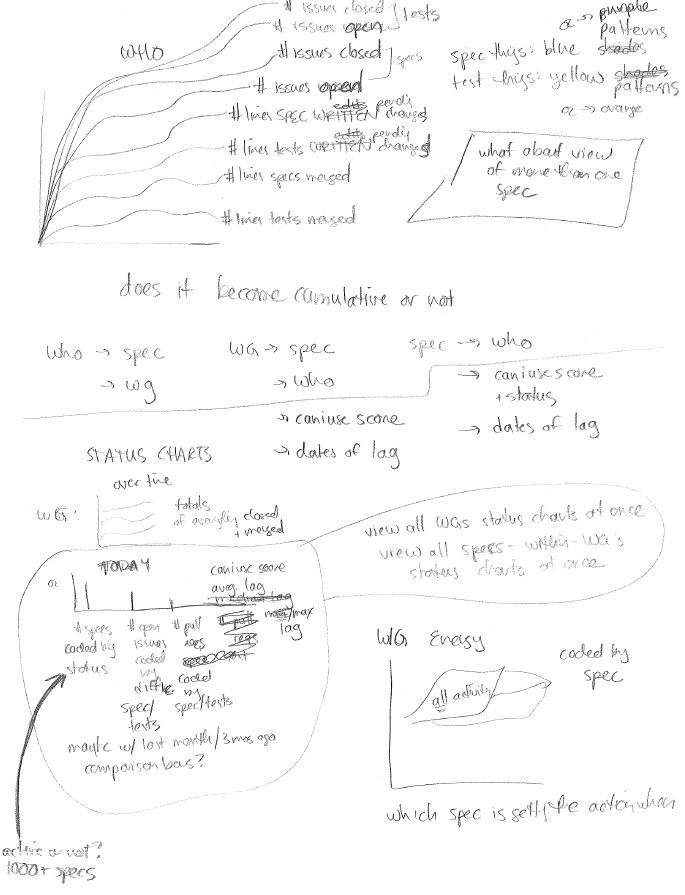 WHO
# issues closed
# issues open
tests
# issues closed
# issues opened
specs
# lines SPEC WRITTEN edits pending changes
# lines tests WRITTEN edits pending changes
# lines specs merged
# lines tests merged
or → purple
patterns
spec things: blue shades
test things: yellow shades
patterns
or → orange
what about view
of more than one
spec
does it become cumulative or not
who → spec
→ wg
WG → spec
→ who
→ caniuse score
→ dates of lag
spec → who
→ caniuse score
+ status
→ dates of lag
STATUS CHARTS
over time
WG:
totals
of everything closed
+ merged
view all WGs status charts at once
view all specs-within-WG's
status charts at once
or
TODAY
caniuse score
avg. lag
median lag
# specs
coded by
status
# open
issues
coded
by
spec/
tests
# pull
reqs
coded
by
spec/tests
# pull
reqs
max
lag
maybe w/ last month/3mos ago
comparison bars?
active or not?
1000+ specs
WG Energy
all activity
coded by
spec
which spec is getting the action when